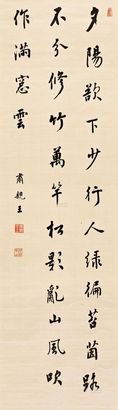 夕陽欲下少行人綠徧苔茵路
不分修竹萬竿松影亂山風吹
作滿窻雲
肅親王